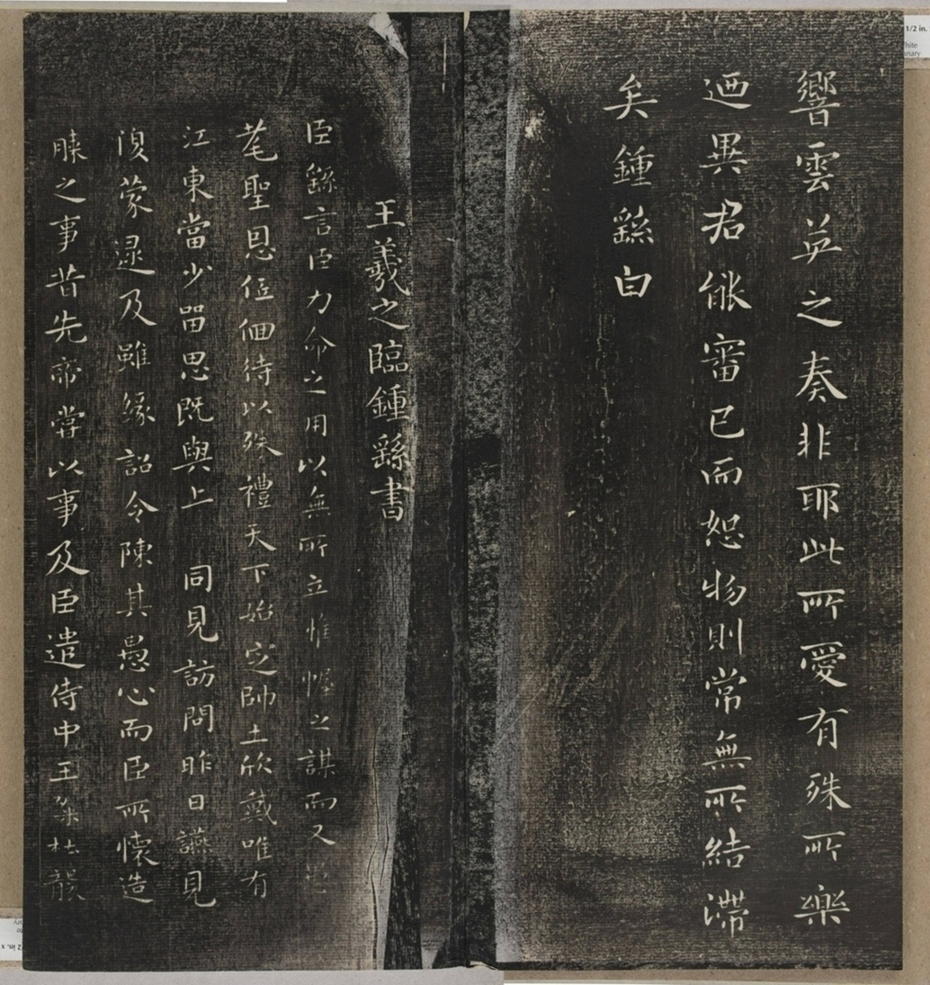 響雲英之奏非耶此所愛有殊所樂
迺異君能審己而恕物則常無所結滯
矣鍾繇白
王羲之臨鍾繇書
臣繇言臣力命之用以無所立帷幄之謀而又愚
耄聖恩低佪待以殊禮天下始定帥土欣戴唯有
江東當少留思既與上 同見訪問昨日讌見
復蒙逮及雖緣詔令陳其愚心而臣所懷造
膝之事昔先帝嘗以事及臣遣侍中王粲杜襲